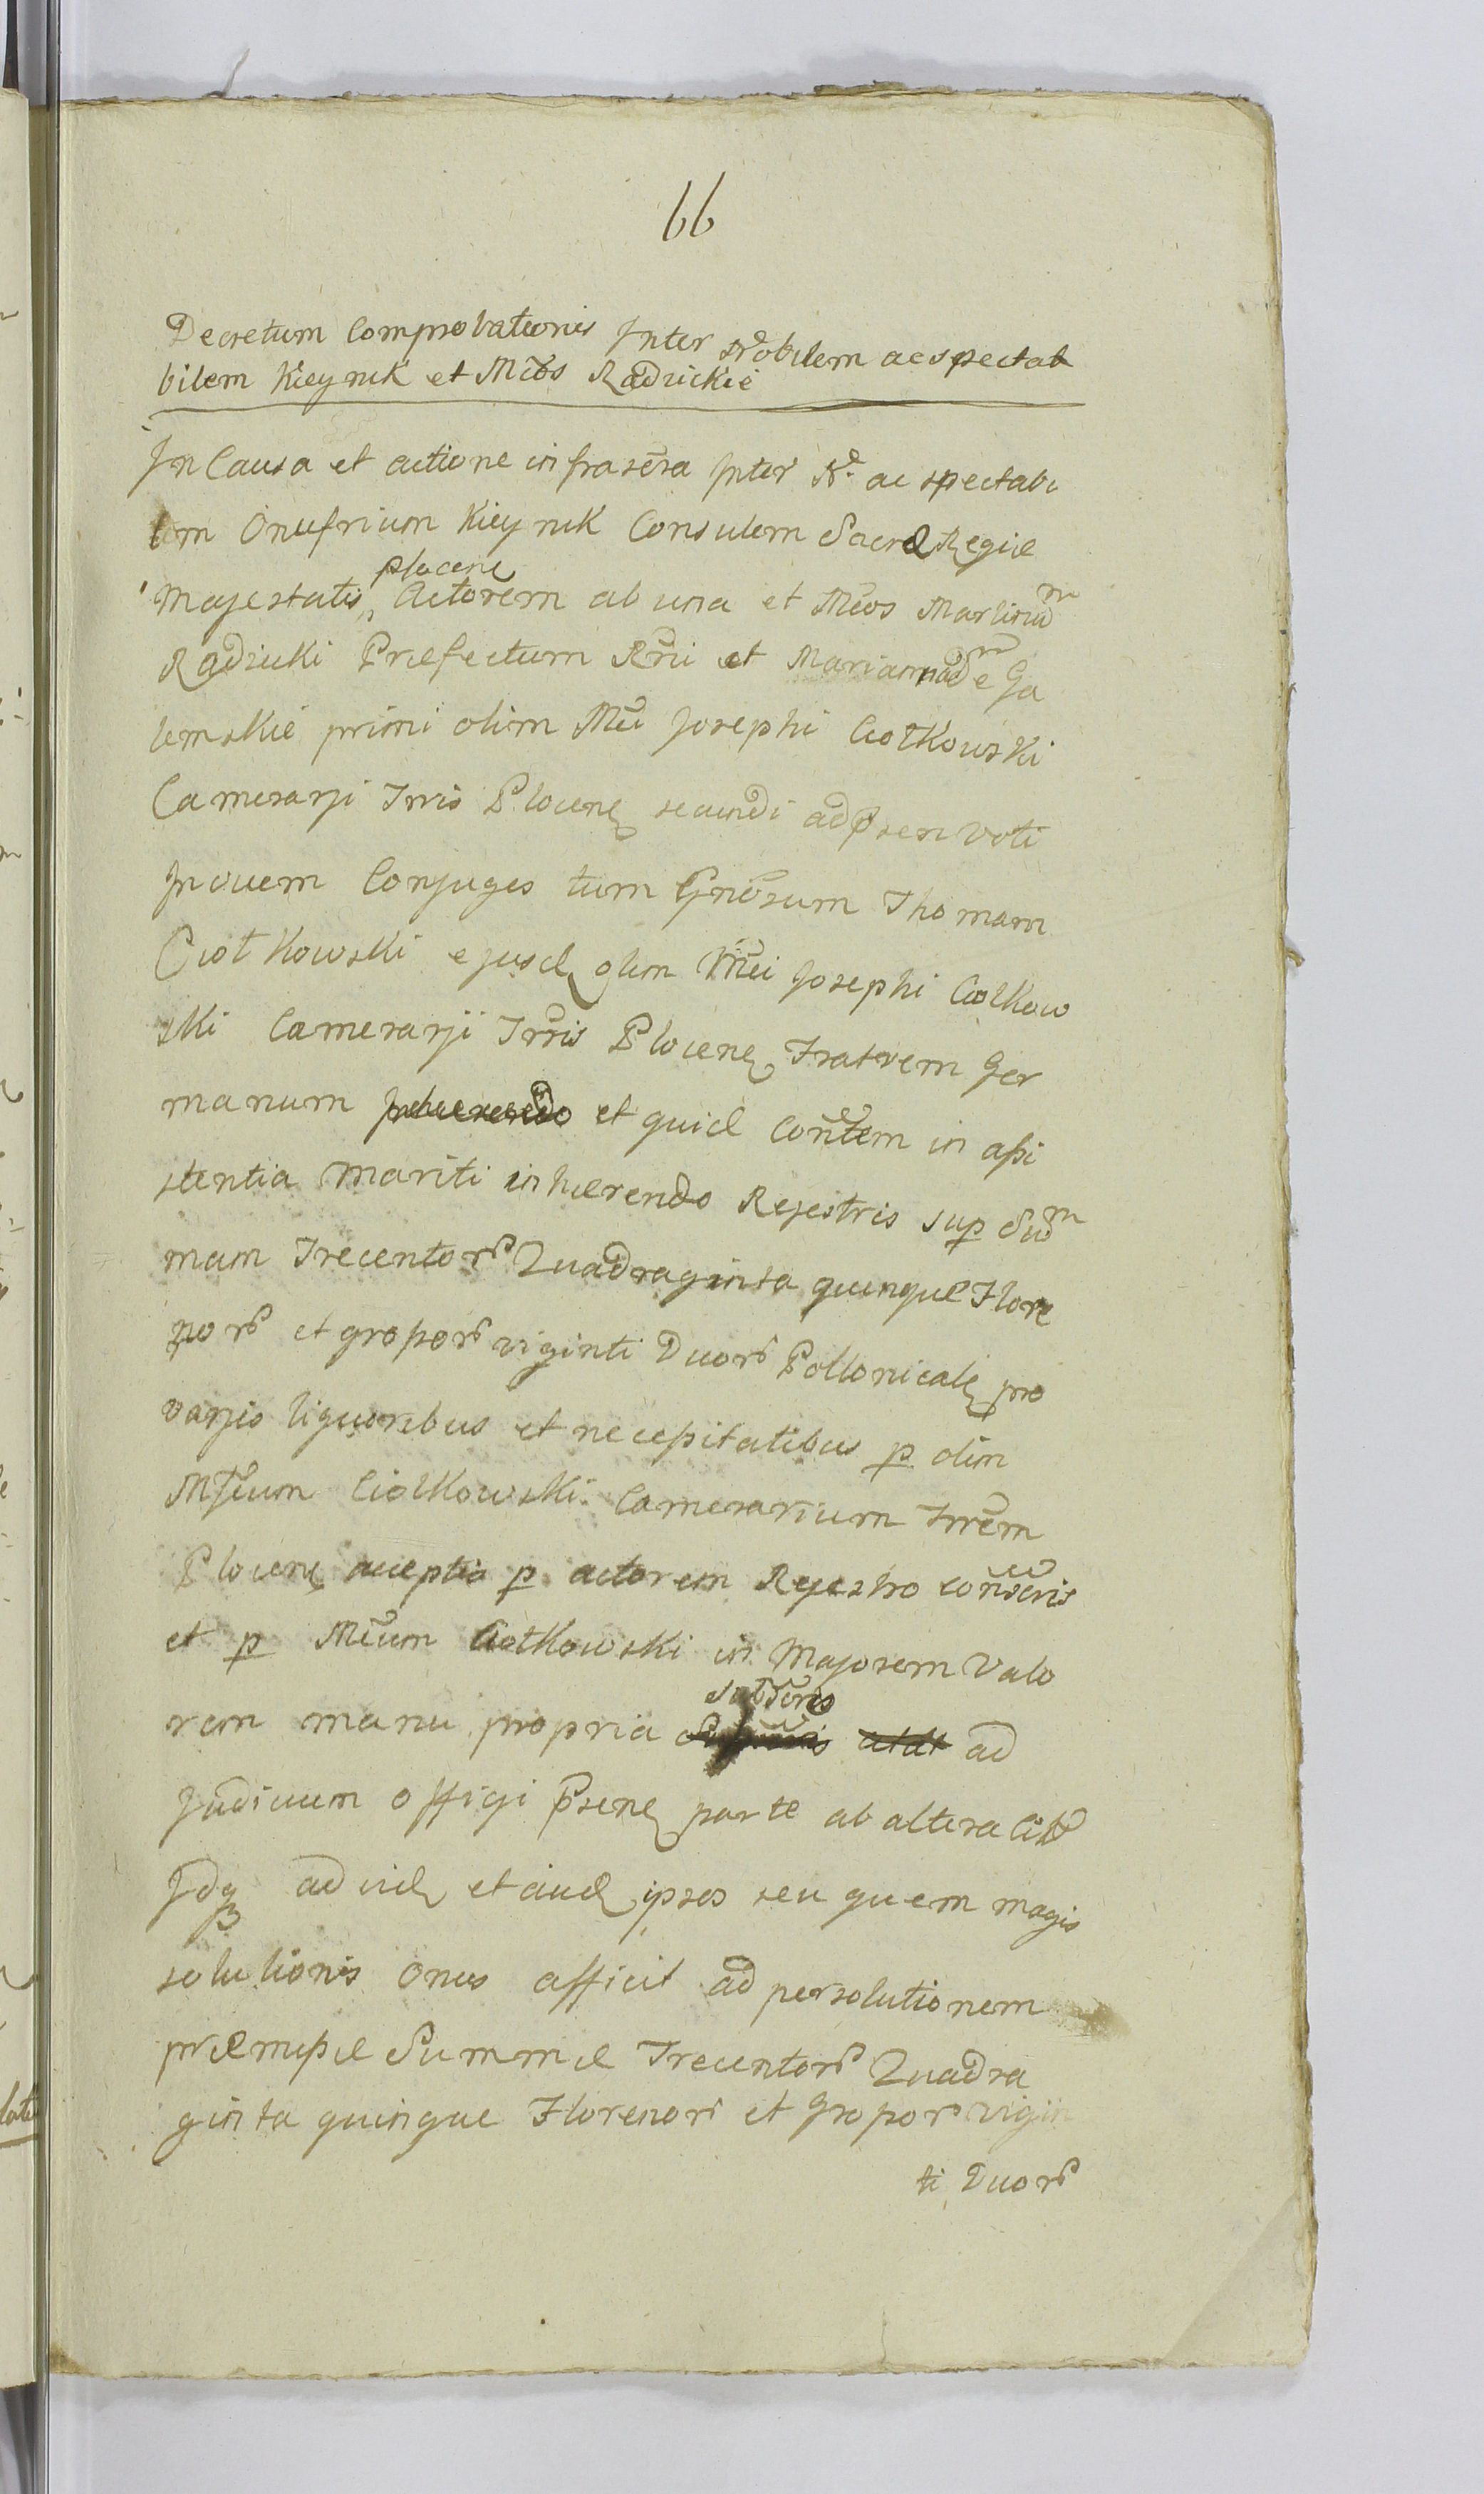 66
Decretum Comprobationis Inter Nobilem ac spectab
bilem Kieynik et Mcos Radzickie
In Causa et actione infrascra Inter N. ac spectabi
lem Onufrium Kieynik Consulem Sacræ Regiæ
Majestatis plocene Actorem ab una et Mcos Martinum
Radzicki Præfectum Rni et Mariannam de Ga
lemskie primi olim Mci Josephi Ciołkowski
Camerarji Trris Plocens secundi ad psen voti
Invicem Conjuges tum Gnosum Thomam
Ciołkowski ejusd olim Mci Josephi Ciołkow
ski Camerarji Trris Plocens Fratrem Ger
manum Inhærendo et quid Contem in assi
stentia Mariti inhærendo Rejestris sup Sum
mam Trecentor Quadraginta quinque Flore
nor et grossor viginti Duor Pollonicals pro
varjis liquoribus et necessitatibus p olim
Mcum Ciołkowski Camerarium Trrem
Plocens acceptis p actorem Rejestro conscris
et p Mcum Ciołkowski in Majorem Valo
rem manu propria subscris ad
Judicium officji Psens parte ab altera Citt
Jdq ad vid et aud ipsos seu quem magis
solutionis onus afficit ad persolutionem
præmissæ Summæ Trecentor Quadra
ginta quinque Florenor et Grossor vigin
ti Duor